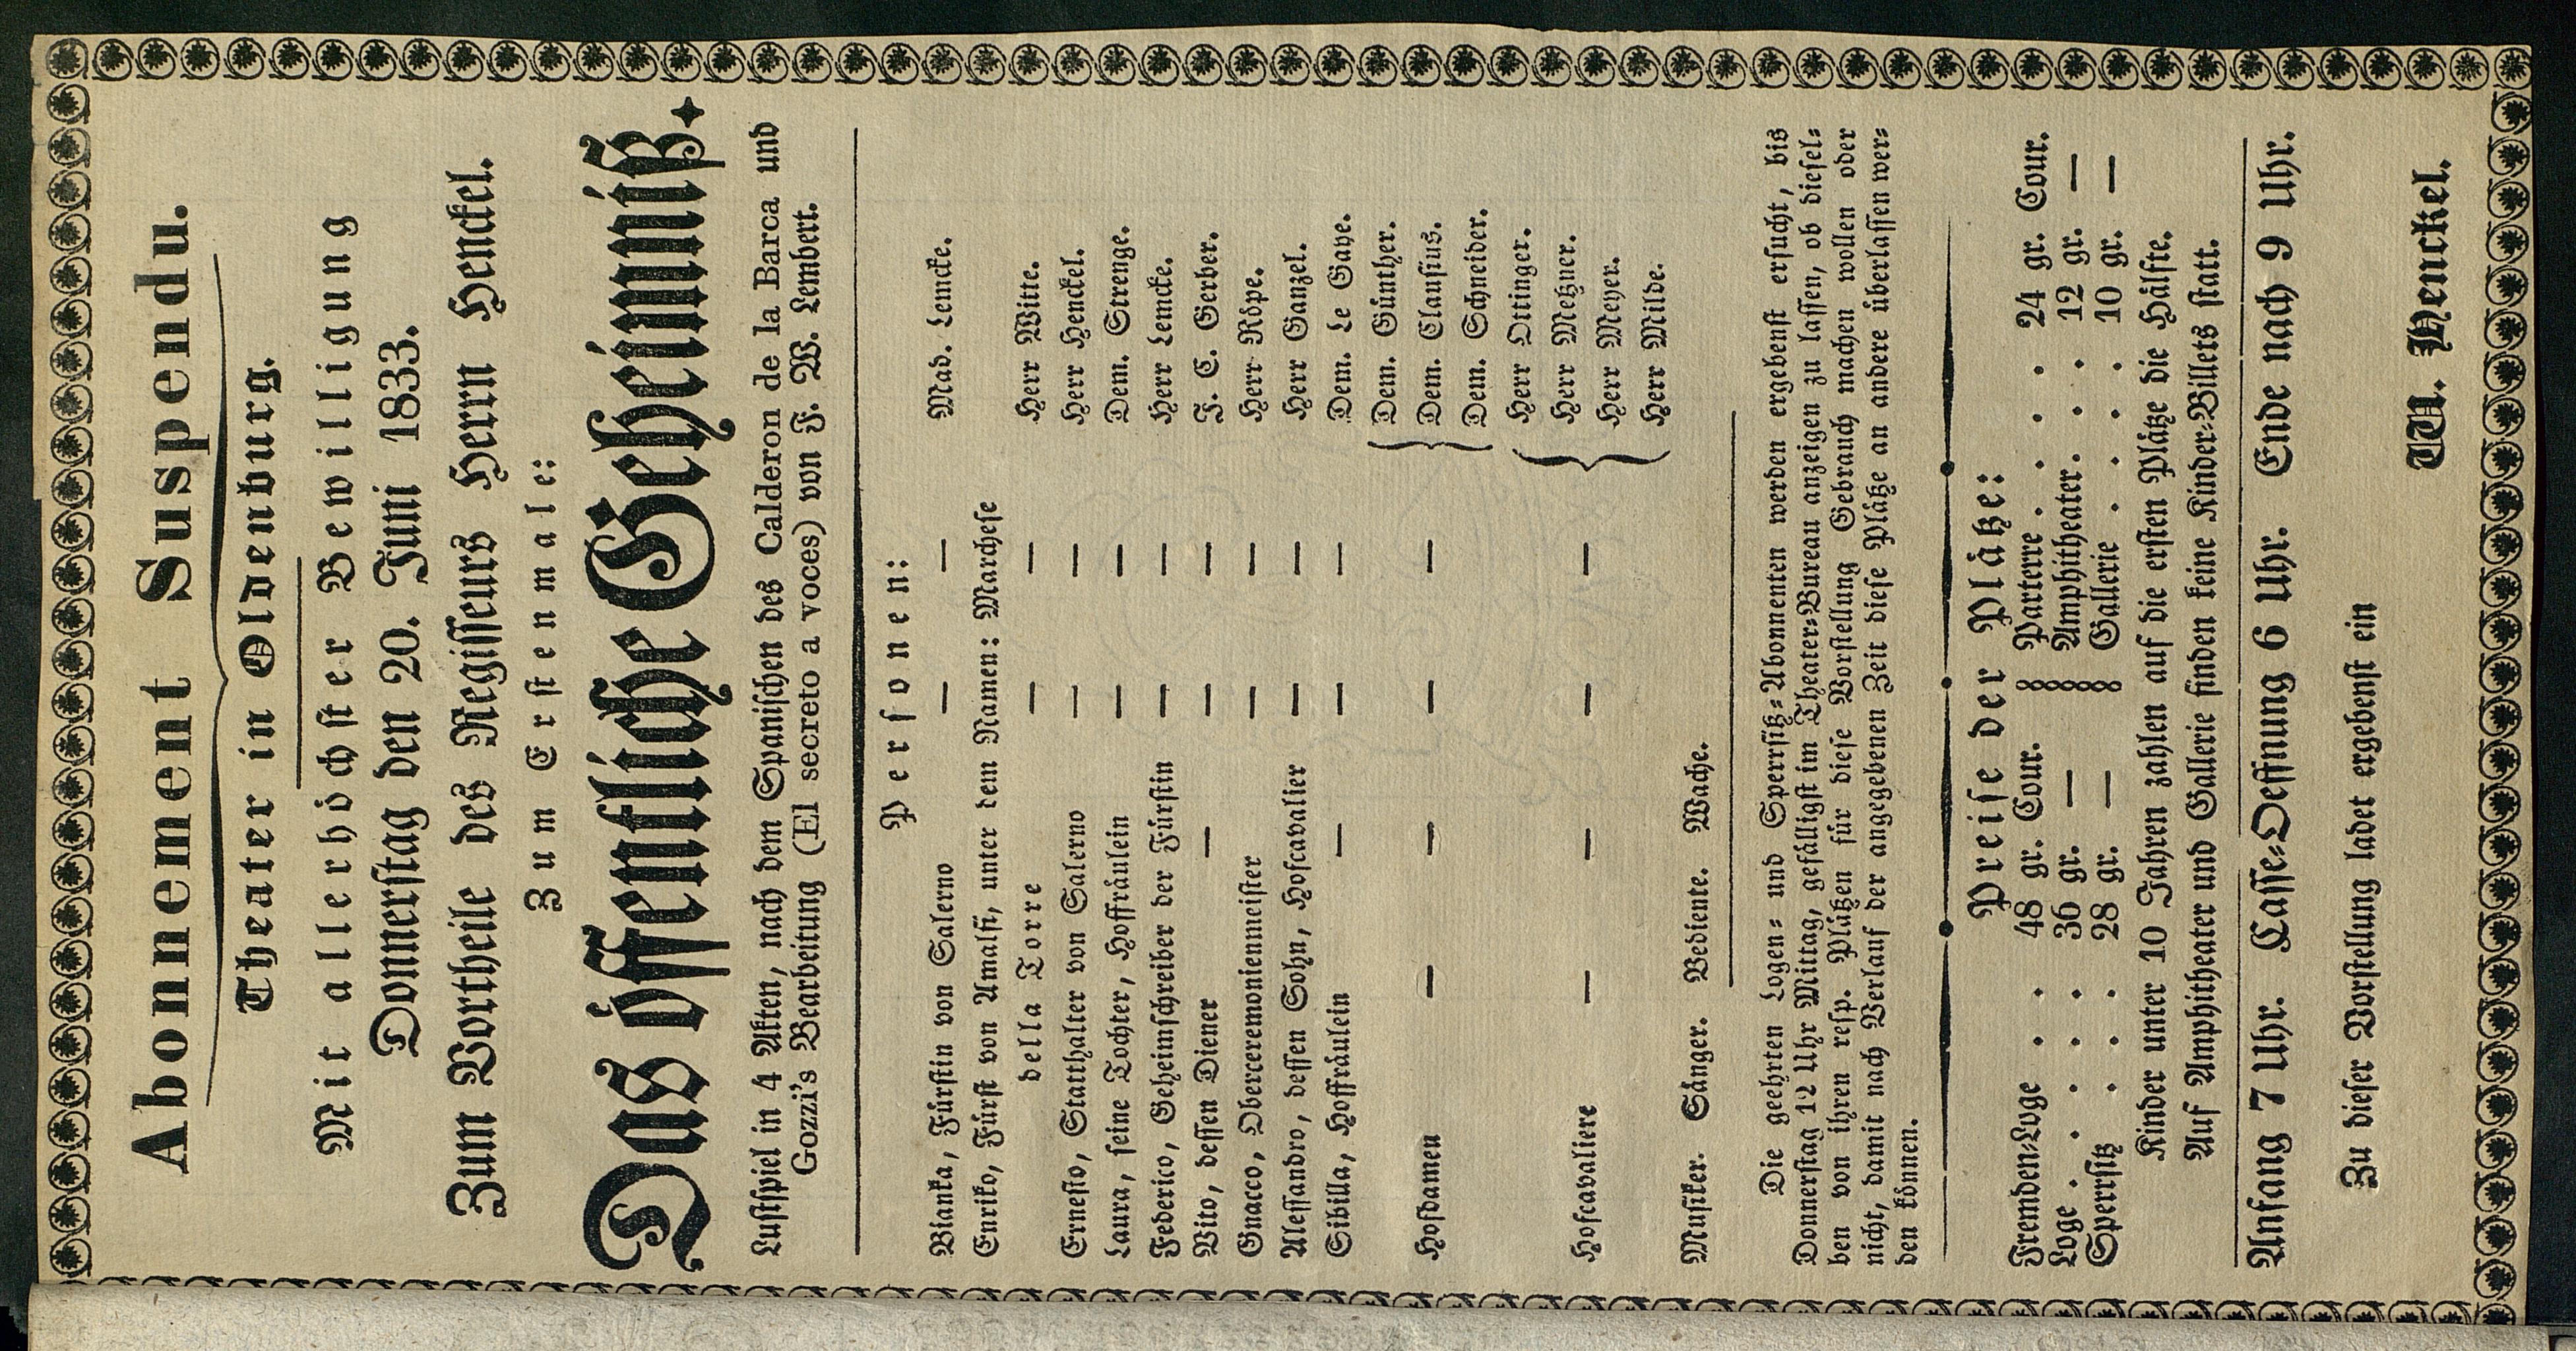 Abonnement Suspendu.
Theater in Oldenburg.
Mit allerhöchster Bewilligung
Donnerstag den 20. Juni 1833.
Zum Vortheile des Regisseurs Herrn Henckel.
Zum Erstenmale:
Das öffentliche Geheimniß.
Lustspiel in 4 Akten, nach dem Spanischen des Calderon de la Barca und
Gozzi's Bearbeitung (El secreto a voces) von F. W. Lembert.
Personen:
Bianka, Fürstin von Salerno — — Mad. Lemcke.
Enriko, Fürst von Amalfi, unter dem Namen: Marchese
della Torre — — Herr Witte.
Ernesto, Statthalter von Salerno — — Herr Henckel.
Laura, seine Tochter, Hoffräulein — — Dem. Strenge.
Federico, Geheimschreiber der Fürstin — — Herr Lemcke.
Vito, dessen Diener — — — F. C. Gerber.
Gnacco, Oberceremonienmeister — — Herr Röpe.
Alessandro, dessen Sohn, Hofcavalier — — Herr Ganzel.
Sibilla, Hoffräulein — — — Dem. Le Gaye.
Dem. Günther.
Hofdamen — — — — Dem. Clausius.
Dem. Schneider.
Herr Ottinger.
Hofcavaliere — — — — Herr Metzner.
Herr Meyer.
Herr Milde.
Musiker. Sänger. Bediente. Wache.
Die geehrten Logen- und Sperrsitz-Abonnenten werden ergebenst ersucht, bis
Donnerstag 12 Uhr Mittag, gefälligst im Theater-Bureau anzeigen zu lassen, ob diesel-
ben von ihren resp. Plätzen für diese Vorstellung Gebrauch machen wollen oder
nicht, damit nach Verlauf der angegebenen Zeit diese Plätze an andere überlassen wer-
den können.
Preise der Plätze:
Fremden-Loge . . 48 gr. Cour. Parterre . . . . 24 gr. Cour.
Loge . . . . . 36 gr. — Amphitheater . . . 12 gr. —
Sperrsitz . . . 28 gr. — Gallerie . . . . 10 gr. —
Kinder unter 10 Jahren zahlen auf die ersten Plätze die Hälfte.
Auf Amphitheater und Gallerie finden keine Kinder-Billets statt.
Anfang 7 Uhr. Casse-Oeffnung 6 Uhr. Ende nach 9 Uhr.
Zu dieser Vorstellung ladet ergebenst ein
W. Henckel.